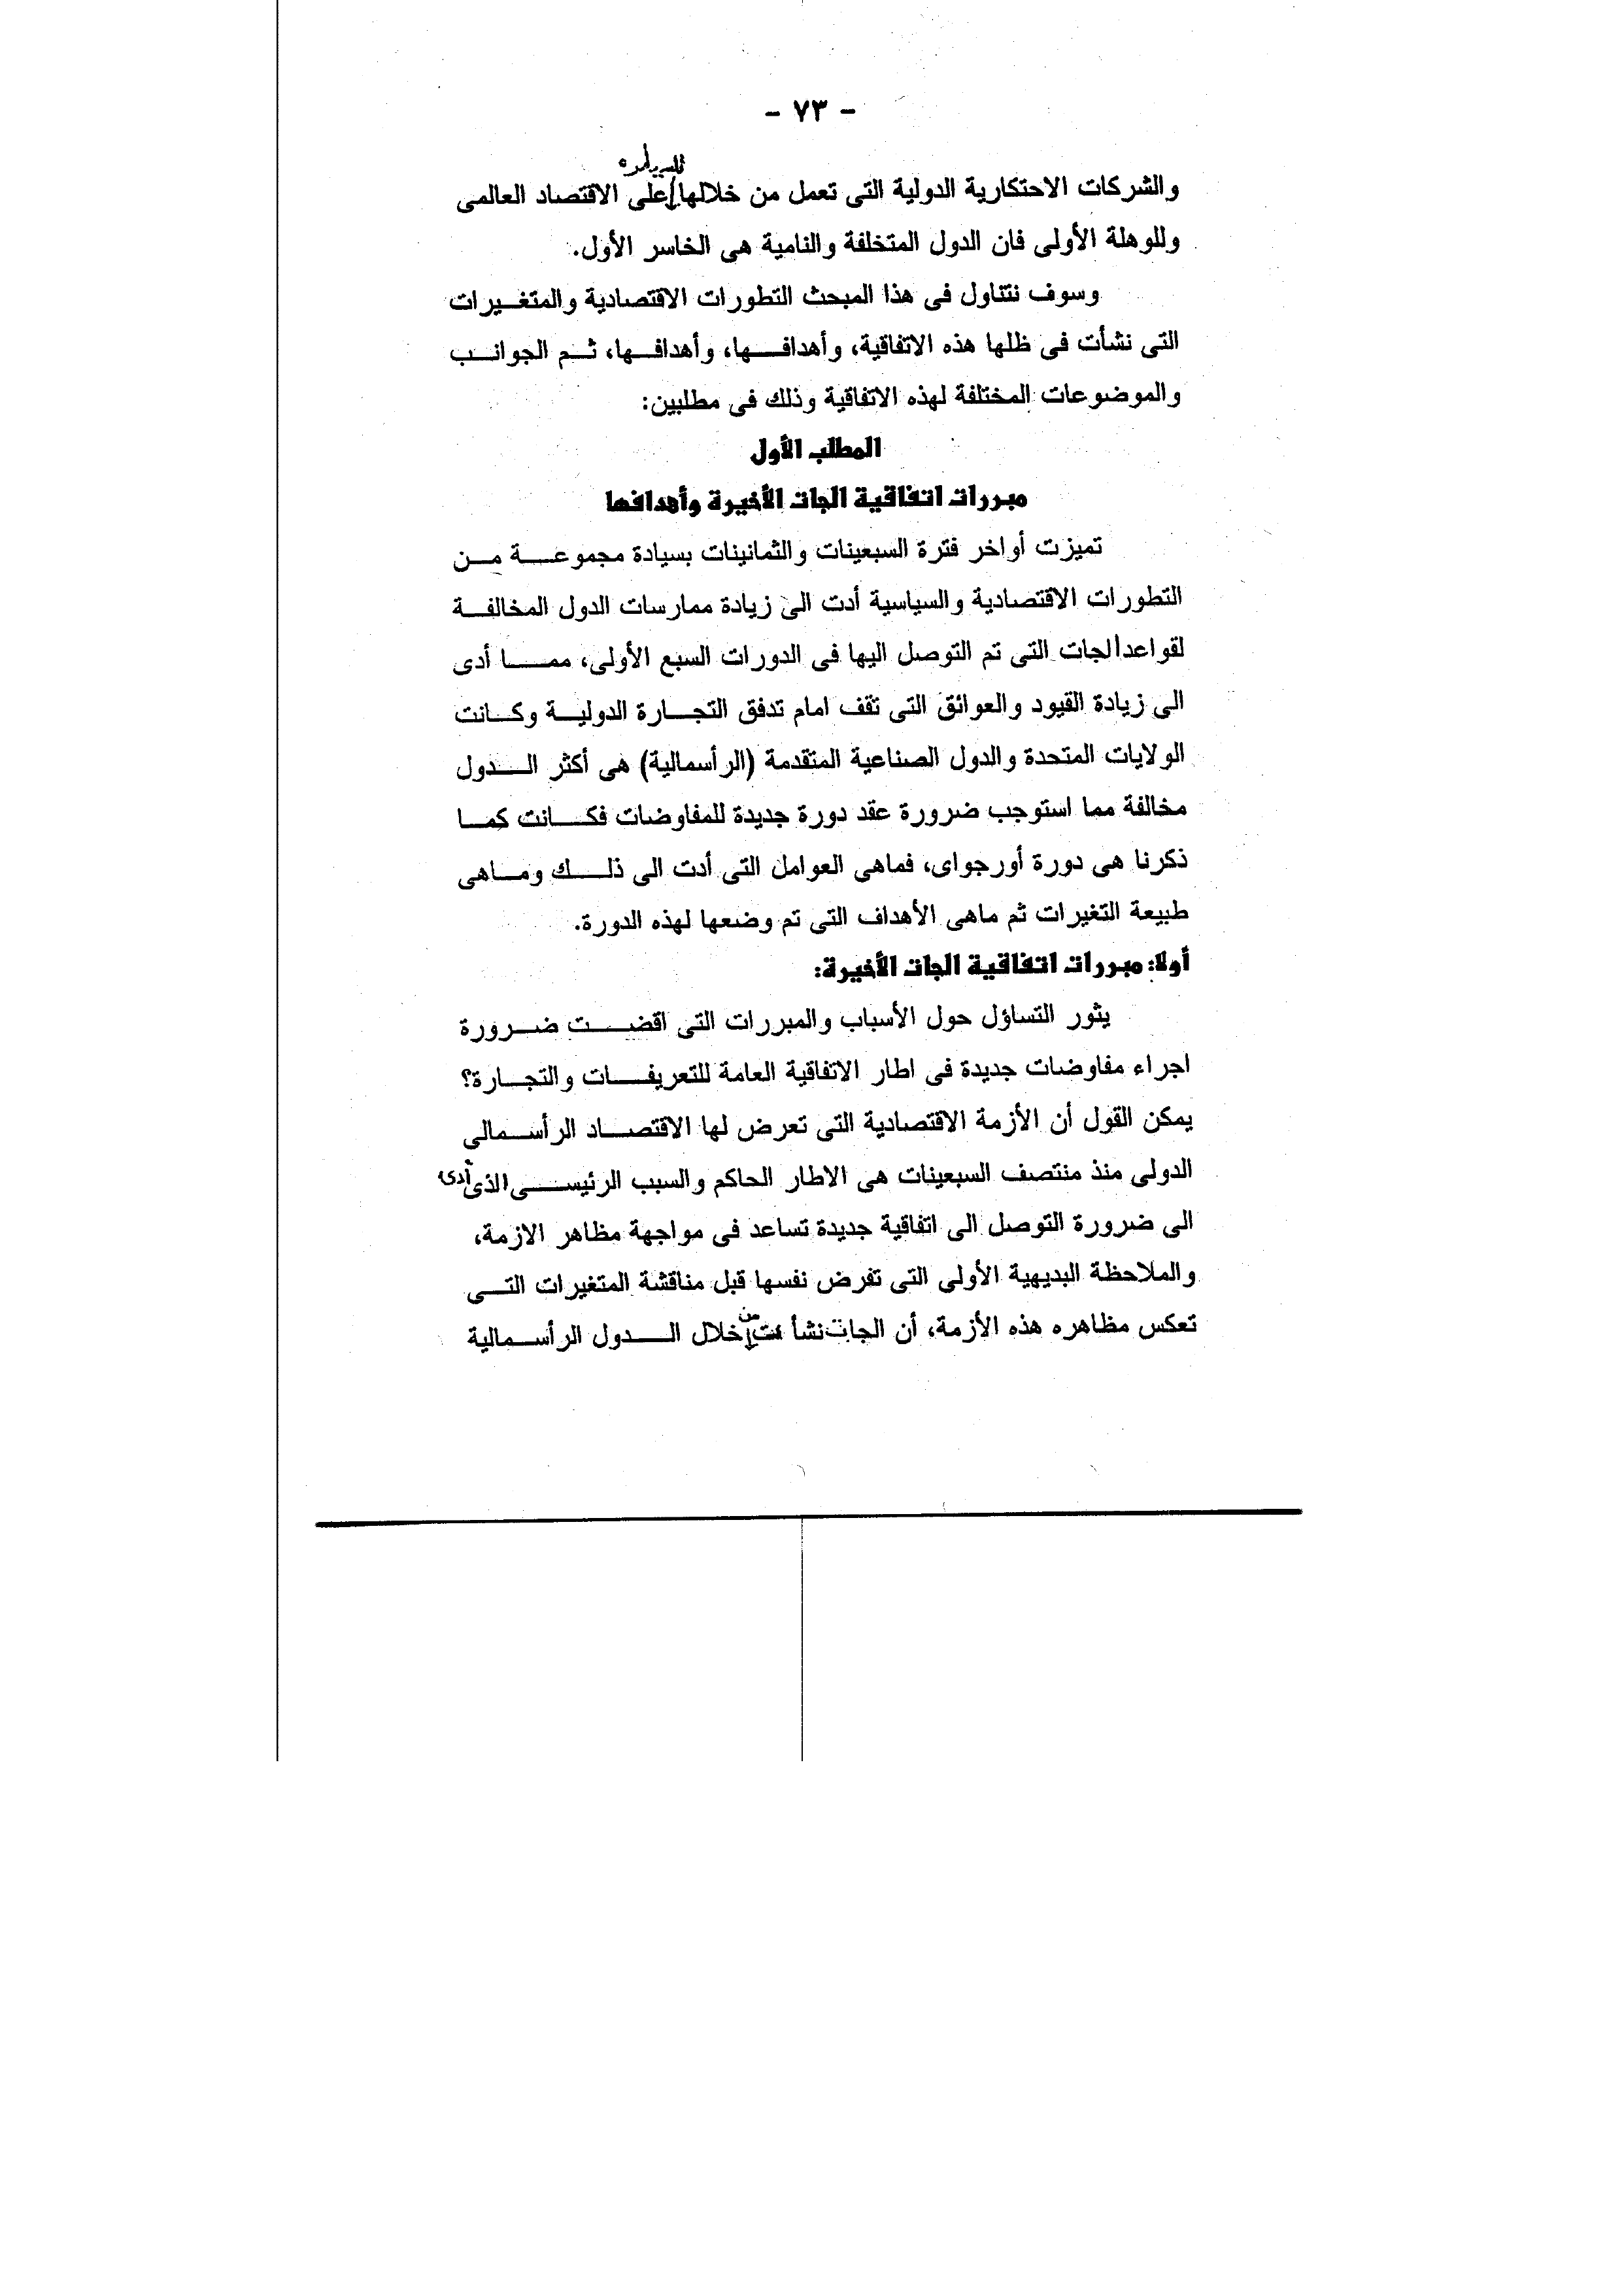 - ٧٣ -
والشركات الاحتكارية الدولية التى تعمل من خلالها للسيطره على الاقتصاد العالمى
وللوهلة الأولى فان الدول المتخلفة والنامية هى الخاسر الأول.
وسوف نتناول فى هذا المبحث التطورات الاقتصادية والمتغيرات
التى نشأت فى ظلها هذه الاتفاقية، وأهدافها، وأهدافها، ثم الجوانب
والموضوعات المختلفة لهذه الاتفاقية وذلك فى مطلبين:
المطلب الأول
مبررات اتفاقية الجات الأخيرة وأهدافها
تميزت أواخر فترة السبعينات والثمانينات بسيادة مجموعة من
التطورات الاقتصادية والسياسية أدت الى زيادة ممارسات الدول المخالفة
لقواعد الجات التى تم التوصل اليها فى الدورات السبع الأولى، مما أدى
الى زيادة القيود والعوائق التى تقف امام تدفق التجارة الدولية وكانت
الولايات المتحدة والدول الصناعية المتقدمة (الرأسمالية) هى أكثر الدول
مخالفة مما استوجب ضرورة عقد دورة جديدة للمفاوضات فكانت كما
ذكرنا هى دورة أورجواى، فماهى العوامل التى أدت الى ذلك وماهى
طبيعة التغيرات ثم ماهى الأهداف التى تم وضعها لهذه الدورة.
أولا: مبررات اتفاقية الجات الأخيرة:
يثور التساؤل حول الأسباب والمبررات التى اقضت ضرورة
اجراء مفاوضات جديدة فى اطار الاتفاقية العامة للتعريفات والتجارة؟
يمكن القول أن الأزمة الاقتصادية التى تعرض لها الاقتصاد الرأسمالى
الدولى منذ منتصف السبعينات هى الاطار الحاكم والسبب الرئيسى الذى أدى
الى ضرورة التوصل الى اتفاقية جديدة تساعد فى مواجهة مظاهر الازمة،
والملاحظة البديهية الأولى التى تفرض نفسها قبل مناقشة المتغيرات التى
تعكس مظاهره هذه الأزمة، أن الجات نشأت من خلال الدول الرأسمالية